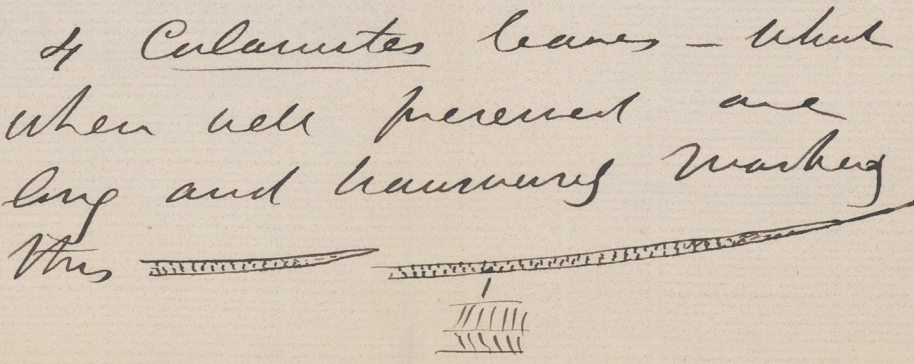 & Calamites leaves – which
when well preserved are
long and transversely marked
thus